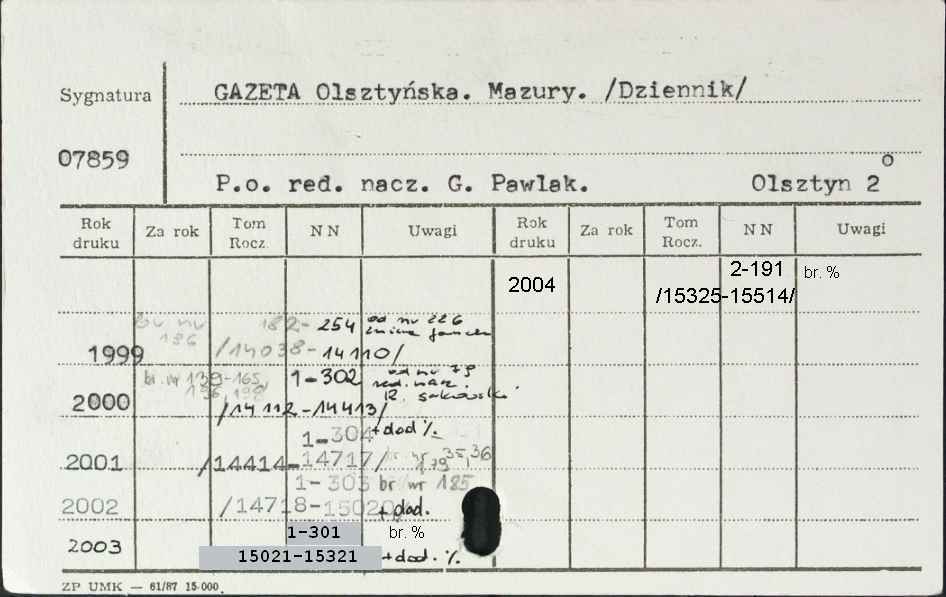 Sygnatura
GAZETA Olsztyńska. Mazury. /Dziennik/
07859
P.o. red. nacz. G. Pawlak. Olsztyn 2
o
Rok druku Za rok Tom Rocz. NN Uwagi Rok druku Za rok Tom Rocz. NN Uwagi
2004 2-191 br. %
/15325-15514/
br nr 196 182-254 od nr 226
zmiana
1999 /14038-14110/
br. nr 139-165, 1-302 od nr 79
196, 198 red. nacz.
2000 /14112-14413/ R.
1-304 +dod %
2001 /14414-14717/ br nr 35, 36
179
1-303 br nr 185
2002 /14718-15020 +dod.
1-301 br. %
2003 15021-15321 +dod. %
ZP UMK — 61/87 15 000.